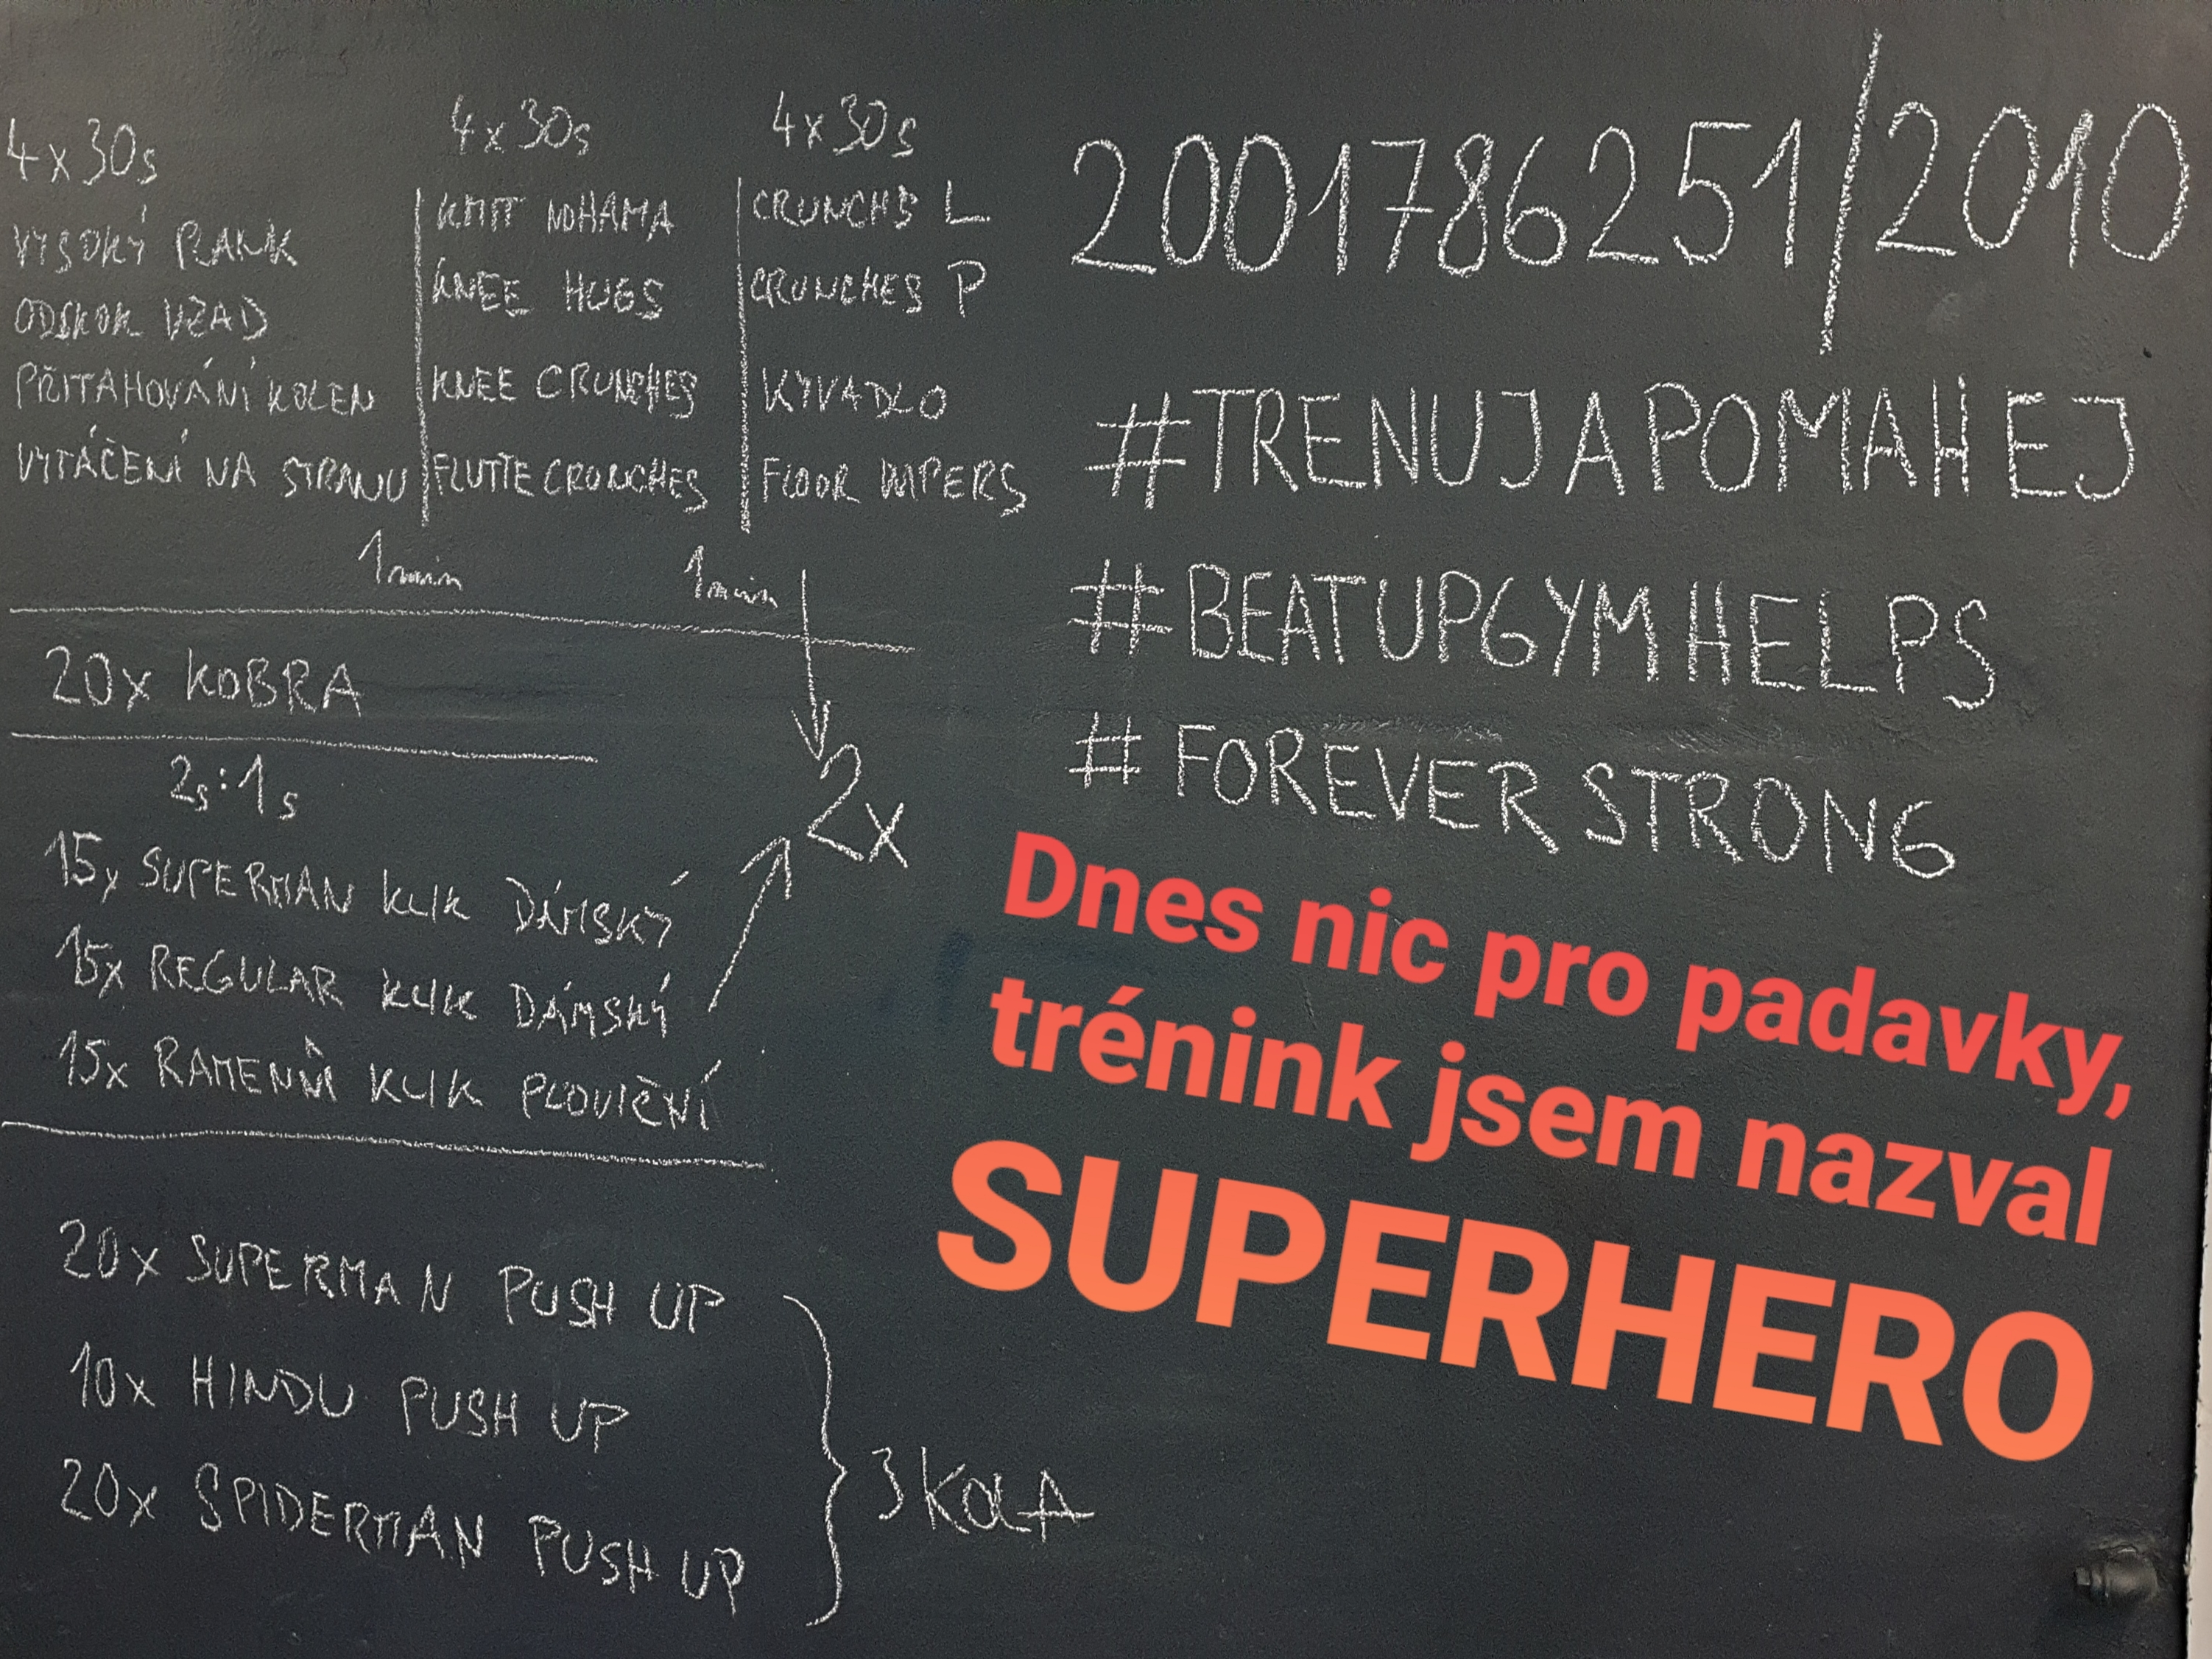 4x30s
VYSOKÝ PLANK
ODSKOK VZAD
PŘITAHOVÁNÍ KOLEN
VYTÁČENÍ NA STRANU
4x30s
KMIT NOHAMA
KNEE HUGS
KNEE CRUNCHES
FLUTTE CRUNCHES
4x30s
CRUNCHS L
CRUNCHES P
KYVADLO
FLOOR WIPERS
1min
1min
20x KOBRA
2s:1s
15x SUPERMAN KLIK DÁMSKÝ
15x REGULAR KLIK DÁMSKÝ
15x RAMENNÍ KLIK
2x
20x SUPERMAN PUSH UP
10x HINDU PUSH UP
20x SPIDERMAN PUSH UP
3 KOLA
2001786251/2010
#TRENUJAPOMAHEJ
#BEATUPGYMHELPS
#FOREVERSTRONG
Dnes nic pro padavky,
trénink jsem nazval
SUPERHERO